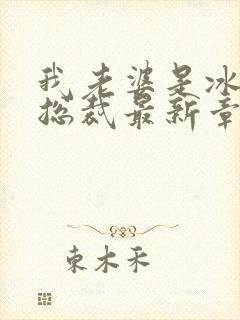 我老婆是冰
总裁最新章
東木禾